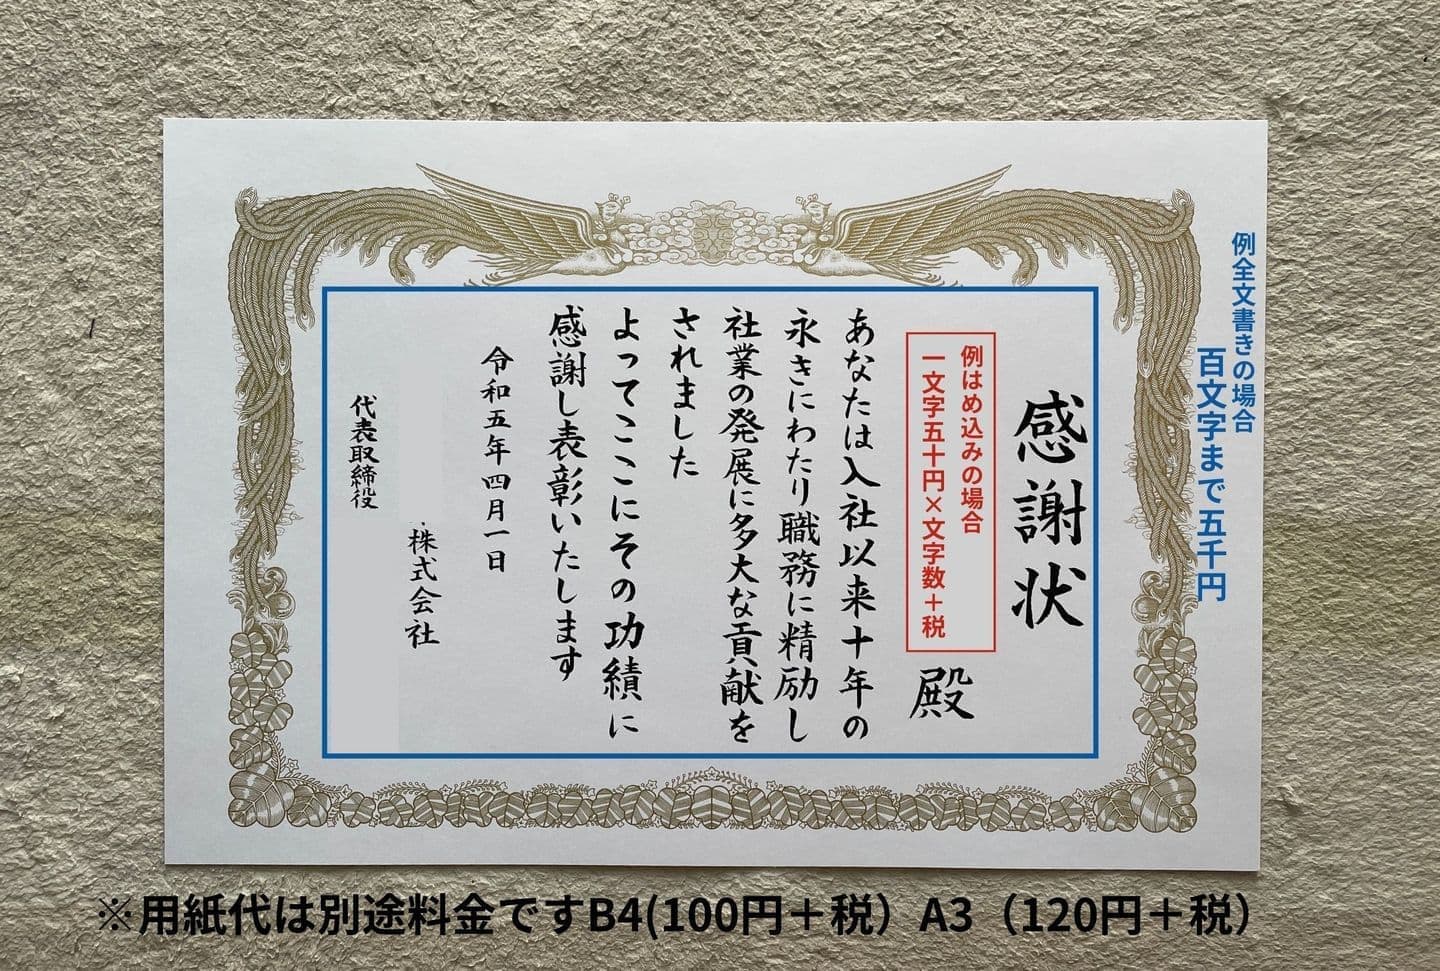 例全文書きの場合
百文字まで五千円
感謝状
例はめ込みの場合
一文字五十円×文字数＋税
殿
あなたは入社以来十年の
永きにわたり職務に精励し
社業の発展に多大な貢献を
されました
よってここにその功績に
感謝し表彰いたします
令和五年四月一日
株式会社
代表取締役
※用紙代は別途料金ですB4(100円＋税）A3（120円＋税）